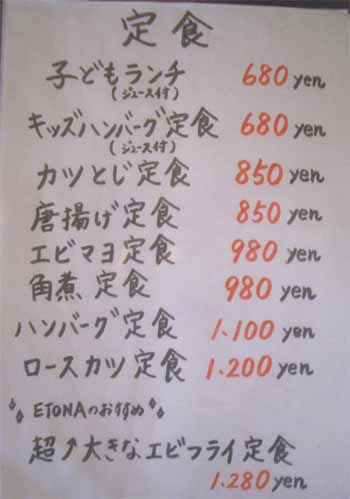 定食
子どもランチ 680 yen
(ジュース付)
キッズハンバーグ定食 680 yen
(ジュース付)
カツとじ定食 850 yen
唐揚げ定食 850 yen
エビマヨ定食 980 yen
角煮定食 980 yen
ハンバーグ定食 1.100 yen
ロースカツ定食 1.200 yen
ETONAのおすすめ
超↗大きなエビフライ定食
1.280 yen